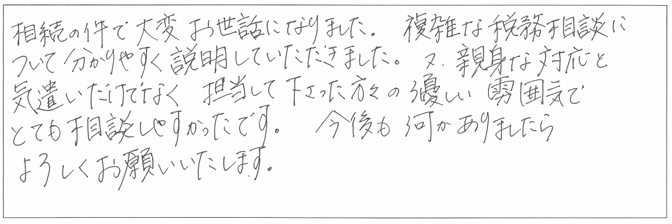 相続の件で大変お世話になりました。複雑な税務相談に
ついて分かりやすく説明していただきました。又、親身な対応と
気遣いだけでなく 担当して下さった方々の優しい雰囲気で
とても相談しやすかったです。 今後も何かありましたら
よろしくお願いいたします。